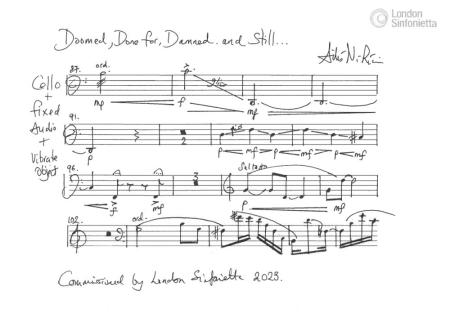 London
Sinfonietta
Doomed, Done for, Damned. and Still...
Cello
+
fixed
Audio
+
Vibrate
object
87. ord. gliss
mp f mp
91.
2
p p mf p mf p mf
96. Saltato
f mf p mf
102. ord.
Commissioned by London Sinfonietta 2023.